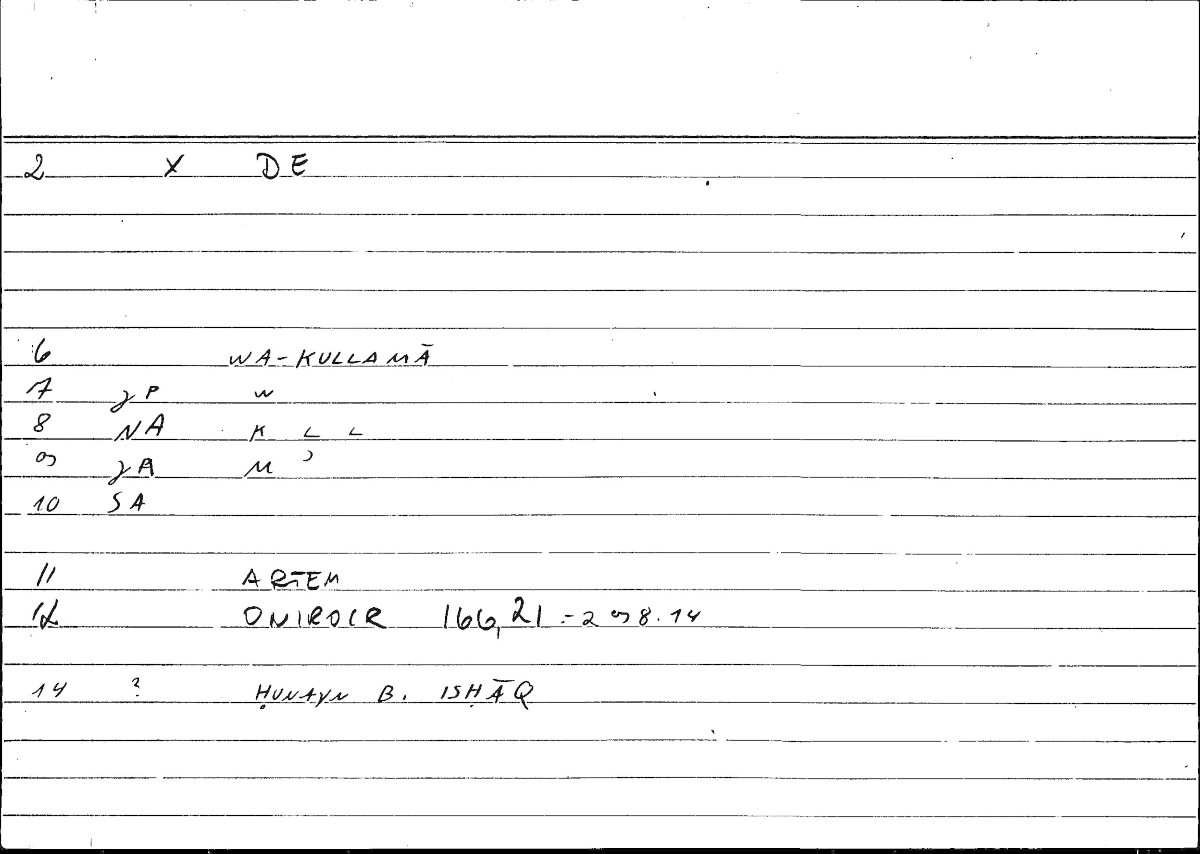 2 X DE
6 WA-KULLAMĀ
7 γP W
8 NA K L L
9 γA M ʾ
10 SA
11 ARTEM
12 ONIROCR 166,21 = 298.14
14 ? ḤUNAYN B. ISḤĀQ